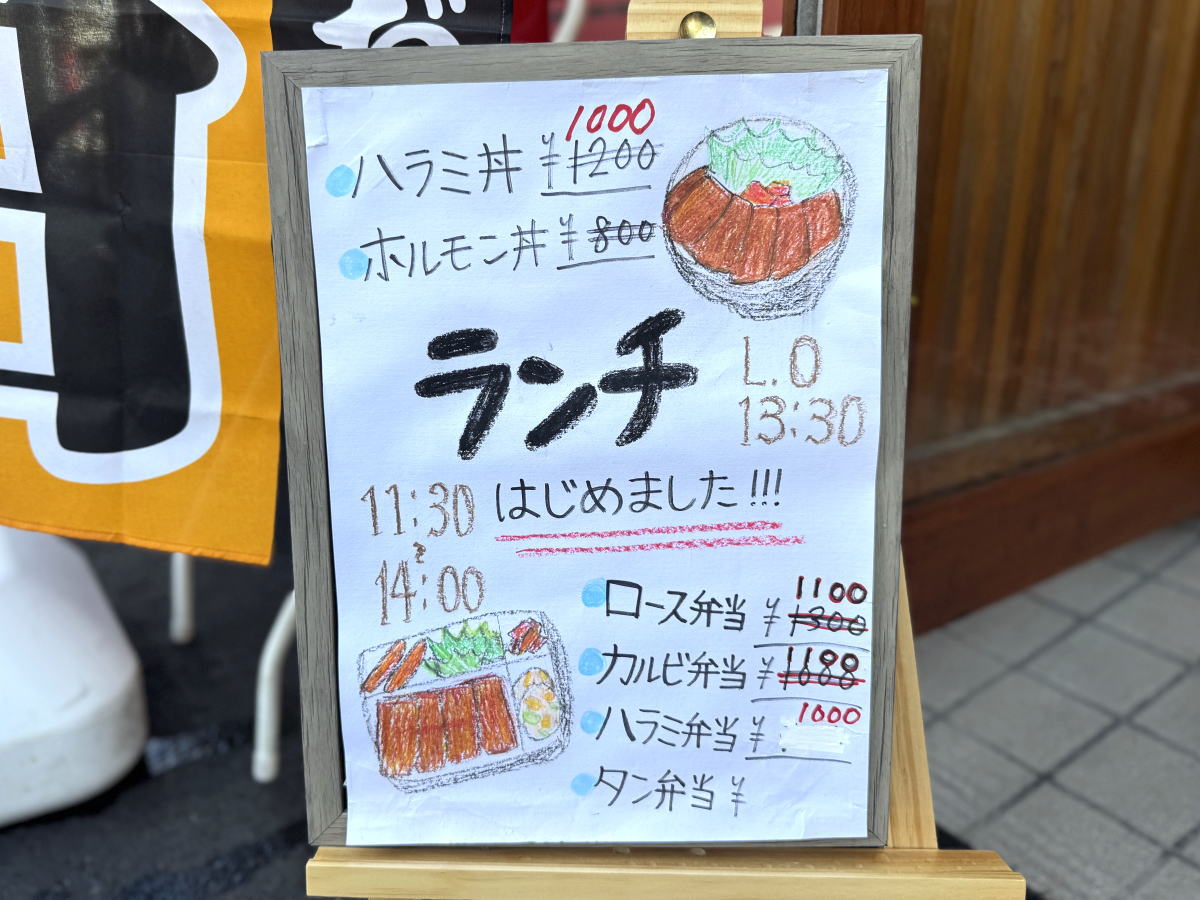 1000
ハラミ丼 ¥1200
ホルモン丼 ¥800
ランチ
L.O
13:30
はじめました!!!
11:30
〜
14:00
1100
ロース弁当 ¥1300
カルビ弁当 ¥1100
1000
ハラミ弁当 ¥
タン弁当 ¥